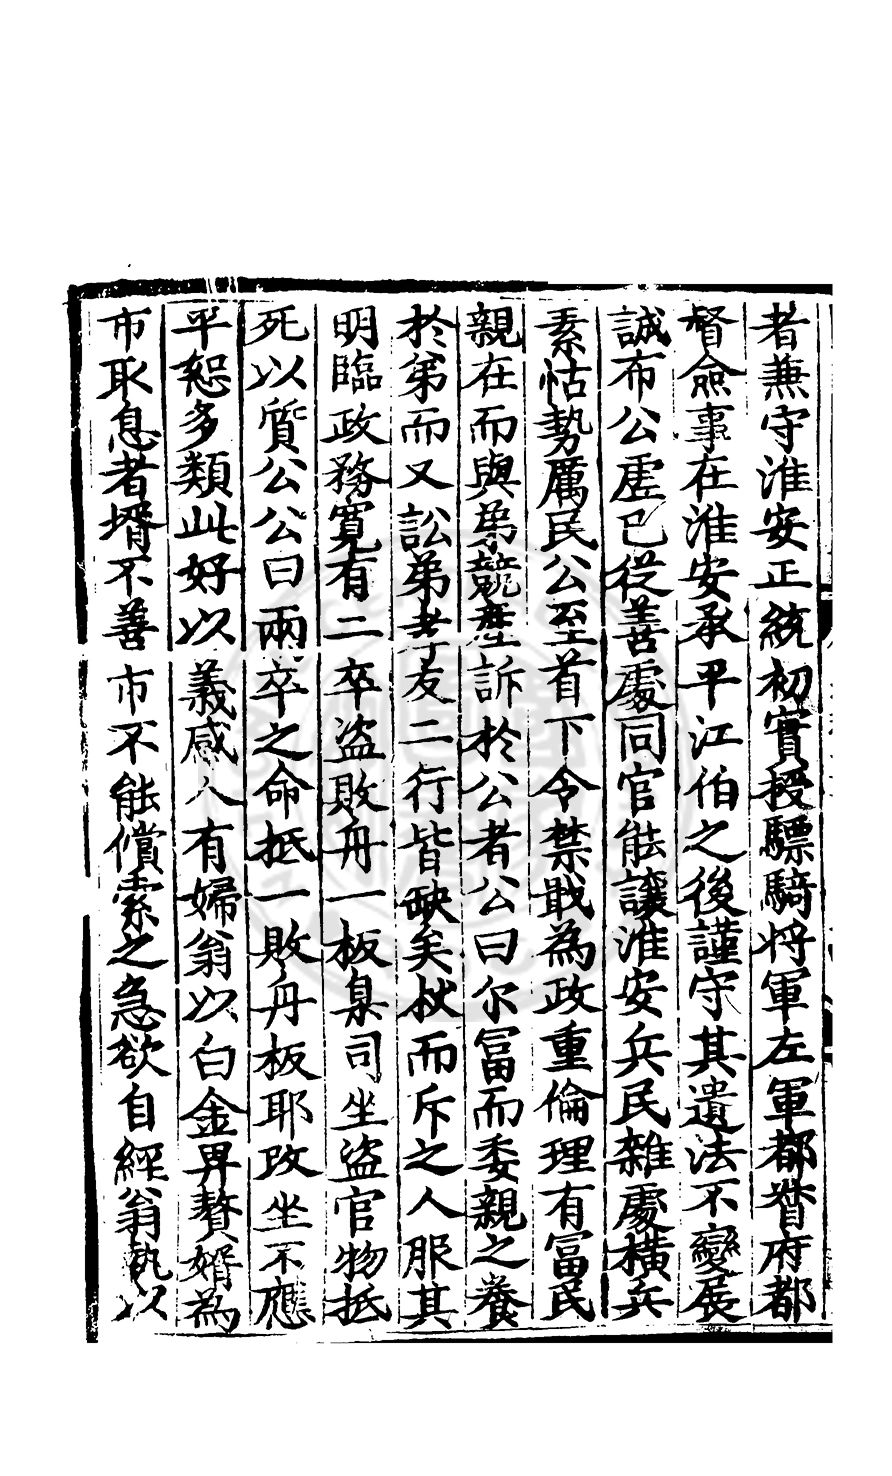 者兼守淮安正統初實授驃騎将軍左軍都督府都
督僉事在淮安承平江伯之後謹守其遺法不變展
誠布公虚已從善處同官能讓淮安兵民雜處橫兵
素怙勢厲民公至首下令禁戢為政重倫理有冨民
親在而與弟競産訴於公者公曰尔冨而委親之養
於弟而又訟弟孝友二行皆缺矣杖而斥之人服其
明臨政務寛有二卒盜敗舟一板臬司坐盜官物抵
死以質公公曰兩卒之命抵一敗舟板耶改坐不應
平恕多類此好以義感人有婦翁以白金畀贅婿為
市取息者壻不善市不能償索之急欲自經翁執以